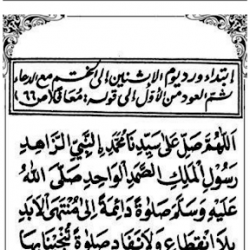 ابتداء ورد يوم الاثنين الى الختم مع الدعاء
ثم العود من الأول الى قوله معافى (ص ٦٦)
اَللّٰهُمَّ صَلِّ عَلٰى سَيِّدِنَا مُحَمَّدِ ࣙالنَّبِيِّ الزَّاهِدِ
رَسُوْلِ الْمَلِكِ الصَّمَدِ الْوَاحِدِ صَلَّى اللّٰهُ
عَلَيْهِ وَسَلَّمَ صَلٰوةً دَائِمَةً اِلٰى مُنْتَهَى الْاَبَدِ
بِلَا انْقِطَاعٍ وَلَا نَفَادٍ صَلٰوةً تُنْجِيْنَا بِهَا